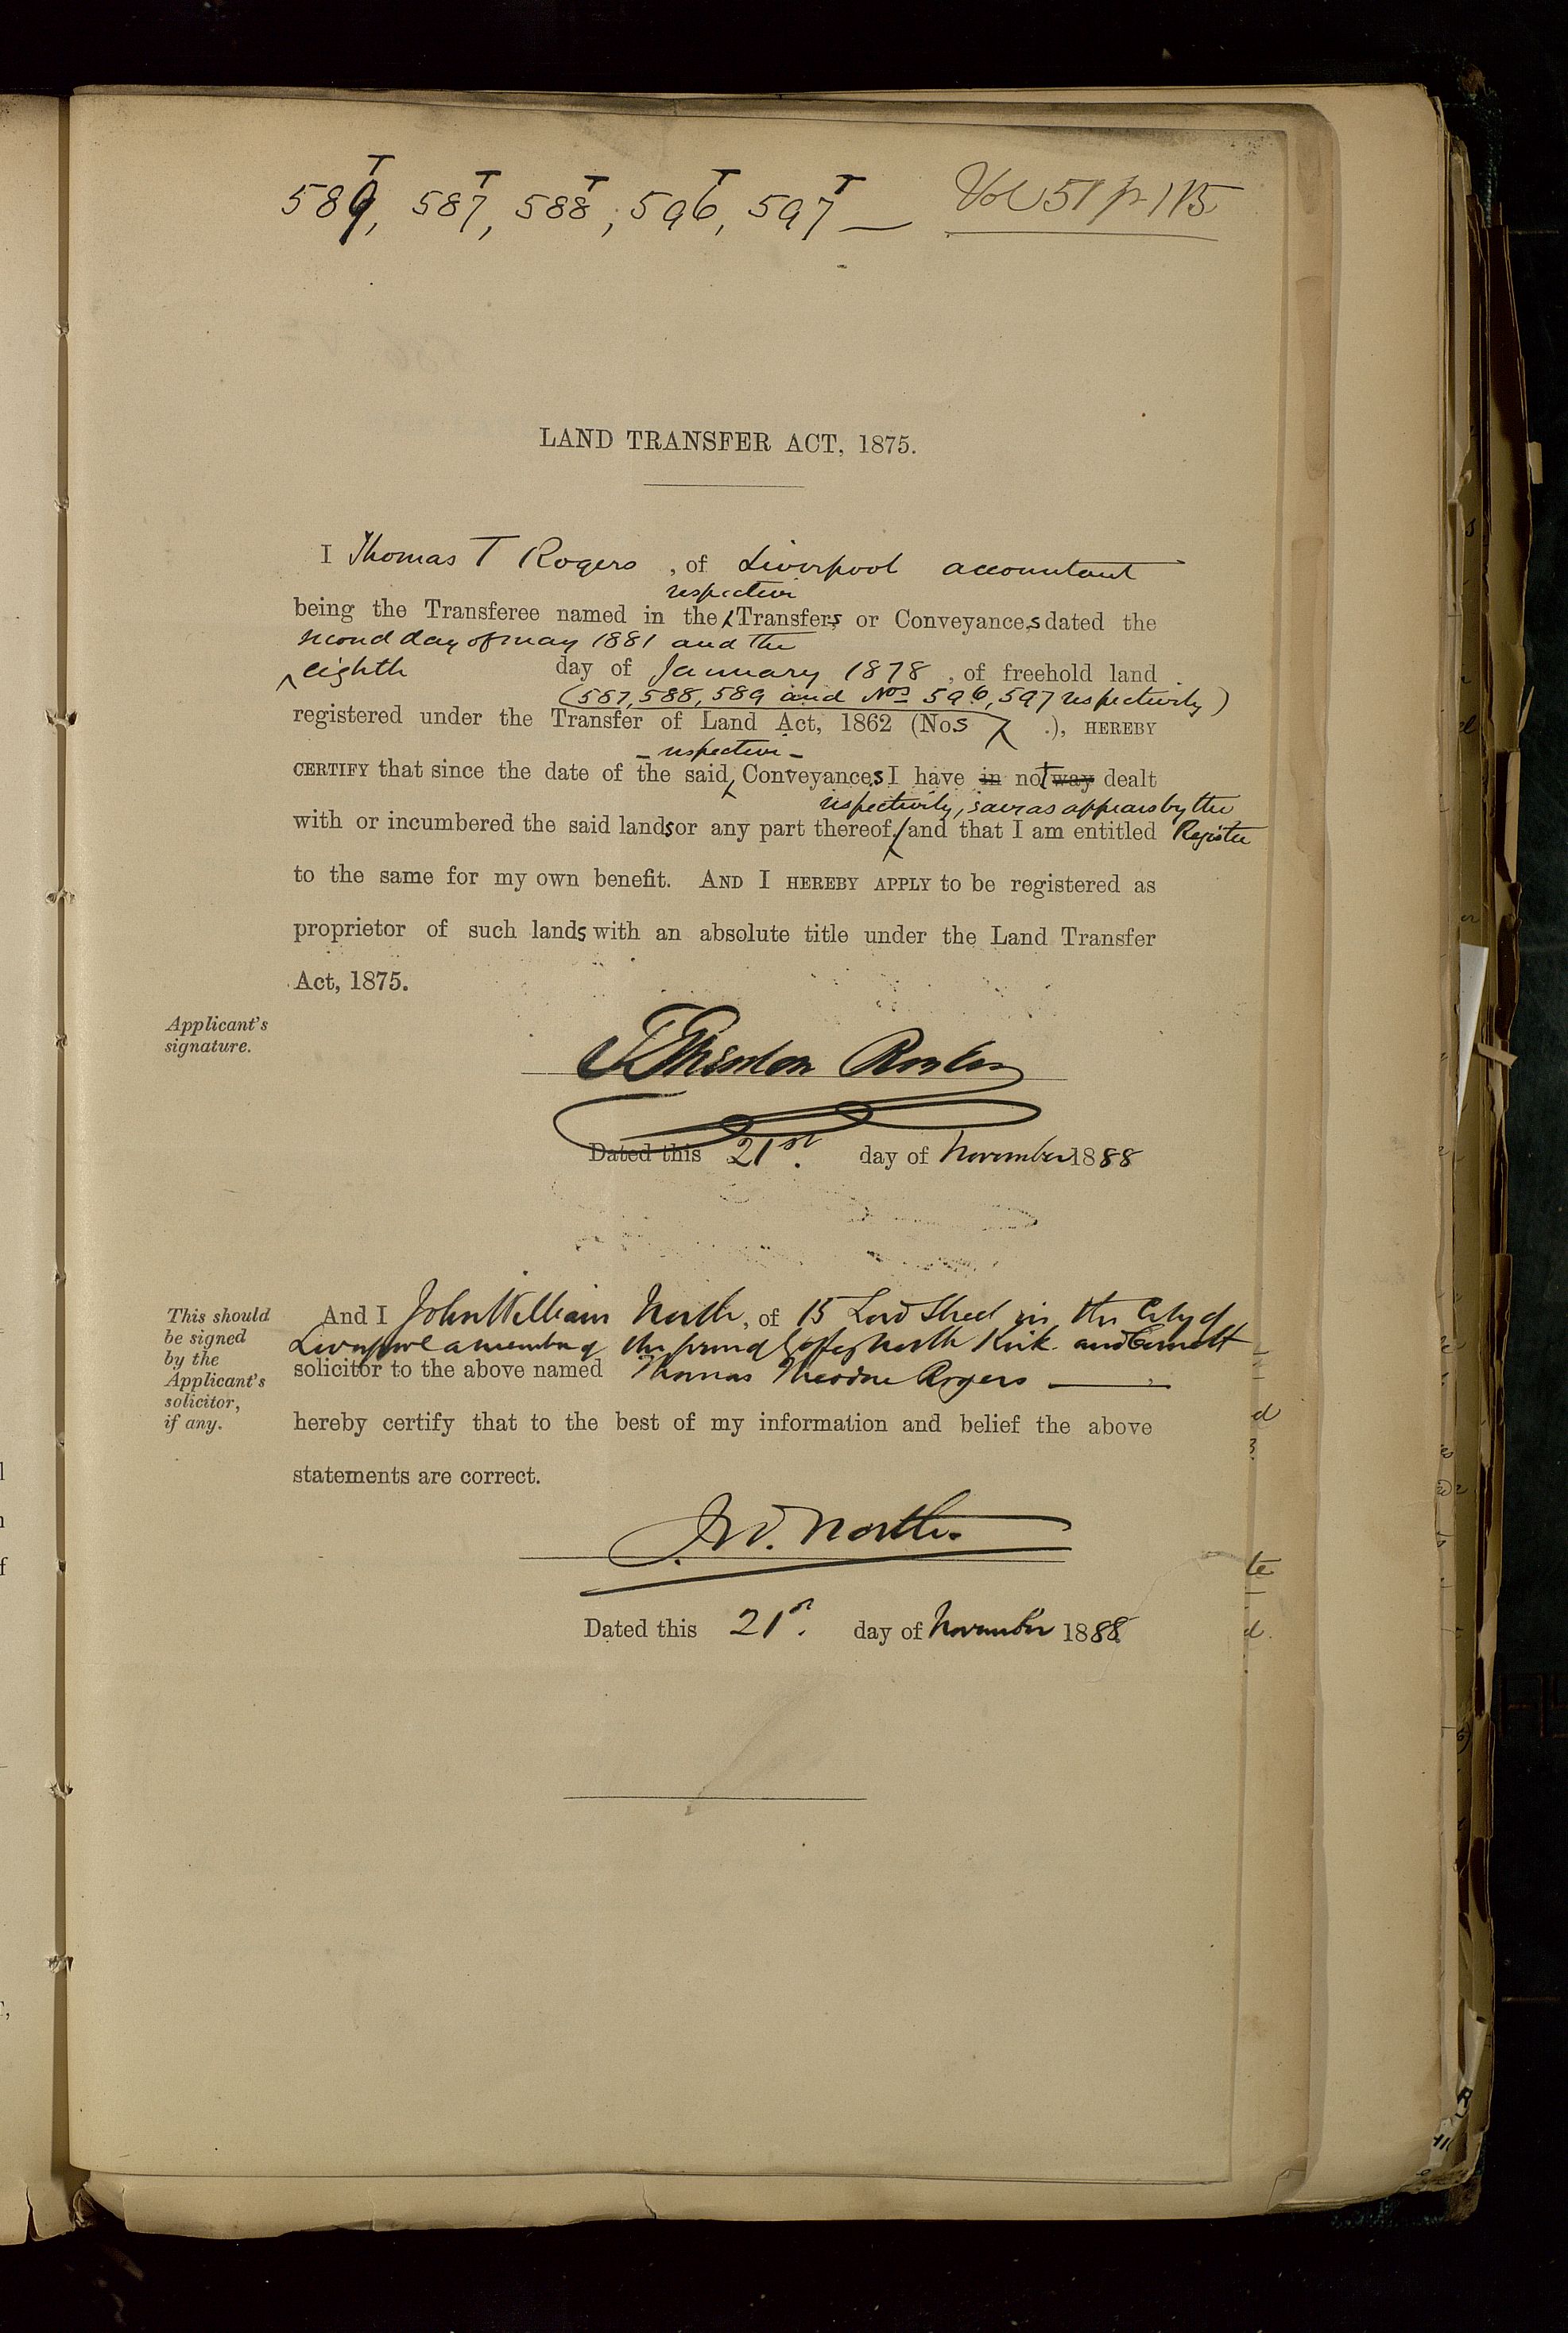 589T, 587T, 588T, 596T, 597T — Vol 51 p 115
LAND TRANSFER ACT, 1875.
I Thomas T Rogers, of Liverpool accountant
respective
being the Transferee named in the Transfers or Conveyances dated the
second day of may 1881 and the
eighth day of January 1878, of freehold land
(587, 588, 589 and Nos 596, 597 respectively)
registered under the Transfer of Land Act, 1862 (Nos .), HEREBY
respective
CERTIFY that since the date of the said Conveyances I have in not way dealt
respectively, save as appears by the
with or incumbered the said lands or any part thereof, and that I am entitled Register
to the same for my own benefit. AND I HEREBY APPLY to be registered as
proprietor of such lands with an absolute title under the Land Transfer
Act, 1875.
Applicant's
signature.
T Theodore Rogers
Dated this 21st. day of November 1888
This should
be signed
by the
Applicant's
solicitor,
if any.
And I John William North, of 15 Lord Street in the City of
Liverpool a member of the firm of North Kirk and
solicitor to the above named Thomas Theodore Rogers
hereby certify that to the best of my information and belief the above
statements are correct.
J. W. North.
Dated this 21st. day of November 1888.